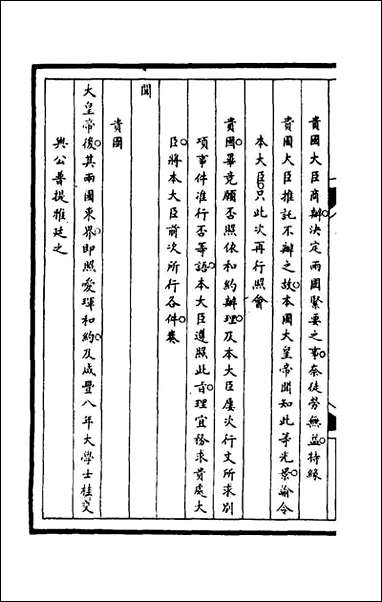 貴國大臣商辦決定兩國緊要之事奈徒勞無益特緣
貴國大臣推託不辦之故本國大皇帝聞知此等光景諭令
本大臣只此次再行照會
貴國畢竟願否照依和約辦理及本大臣屢次行文所求別
項事件准行否等語本大臣遵照此旨理宜務求貴處大
臣將本大臣前次所行各件奏
聞
貴國
大皇帝後其兩國東界即照愛琿和約及咸豐八年大學士桂交
與公普提雅廷之